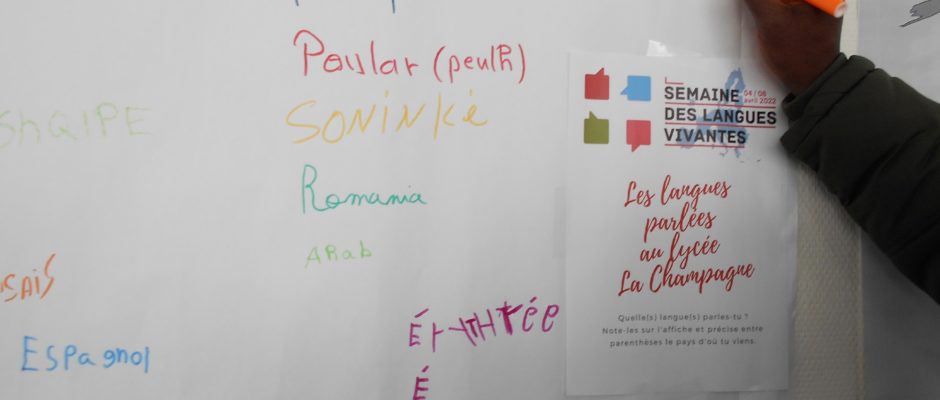 Poular (peulh)
SHQIPE
SONINKÉ
Romania
ARab
Espagnol
É
SEMAINE
04 / 08
avril 2022
DES LANGUES
VIVANTES
Les langues
parlées
au lycée
La Champagne
Quelle(s) langue(s) parles-tu ?
Note-les sur l'affiche et précise entre
parenthèses le pays d'où tu viens.